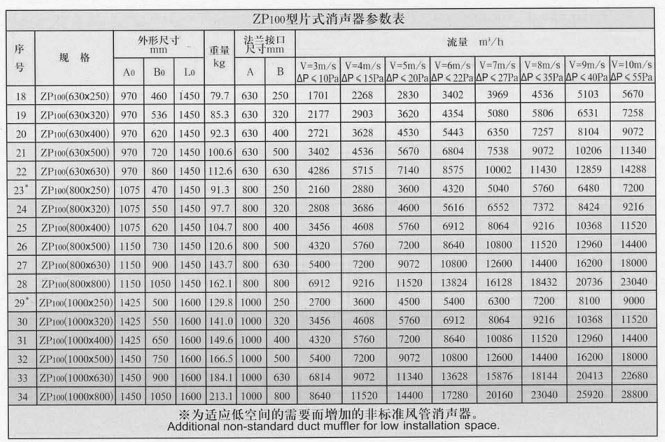 ZP100型片式消声器参数表
序号 规 格 外形尺寸 mm 重量 kg 法兰接口尺寸mm 流量 m³/h
A0 B0 L0 A B V=3m/s ΔP≤10Pa V=4m/s ΔP≤15Pa V=5m/s ΔP≤20Pa V=6m/s ΔP≤22Pa V=7m/s ΔP≤27Pa V=8m/s ΔP≤35Pa V=9m/s ΔP≤40Pa V=10m/s ΔP≤55Pa
18 ZP100(630x250) 970 460 1450 79.7 630 250 1701 2268 2830 3402 3969 4536 5103 5670
19 ZP100(630x320) 970 536 1450 85.3 630 320 2177 2903 3620 4354 5080 5806 6531 7258
20 ZP100(630x400) 970 620 1450 92.3 630 400 2721 3628 4530 5443 6350 7257 8104 9072
21 ZP100(630x500) 970 720 1450 100.6 630 500 3402 4536 5670 6804 7538 9072 10206 11340
22 ZP100(630x630) 970 860 1450 112.6 630 630 4286 5715 7140 8575 10002 11430 12859 14288
23* ZP100(800x250) 1075 470 1450 91.3 800 250 2160 2880 3600 4320 5040 5760 6480 7200
24 ZP100(800x320) 1075 550 1450 97.7 800 320 2808 3686 4600 5616 6552 7372 8424 9216
25 ZP100(800x400) 1075 620 1450 104.7 800 400 3456 4608 5760 6912 8064 9216 10368 11520
26 ZP100(800x500) 1150 730 1450 120.6 800 500 4320 5760 7200 8640 10800 11520 12960 14400
27 ZP100(800x630) 1150 900 1450 143.7 800 630 5400 7200 9072 10800 12600 14400 16200 18000
28 ZP100(800x800) 1150 1050 1450 162.1 800 800 6912 9216 11520 13824 16128 18432 20736 23040
29* ZP100(1000x250) 1425 500 1600 129.8 1000 250 2700 3600 4500 5400 6300 7200 8100 9000
30 ZP100(1000x320) 1425 550 1600 141.0 1000 320 3456 4608 5760 6912 8064 9216 10368 11520
31 ZP100(1000x400) 1425 650 1600 149.6 1000 400 4320 5760 7200 8640 10086 11520 12960 14400
32 ZP100(1000x500) 1450 750 1600 166.5 1000 500 5400 7200 9072 10800 12600 14400 16200 18000
33 ZP100(1000x630) 1450 900 1600 184.1 1000 630 6814 9072 11340 13628 15876 18144 20413 22680
34 ZP100(1000x800) 1450 1050 1600 213.1 1000 800 8640 11520 14400 17280 20160 23040 25920 28800
※为适应低空间的需要而增加的非标准风管消声器。
Additional non-standard duct muffler for low installation space.